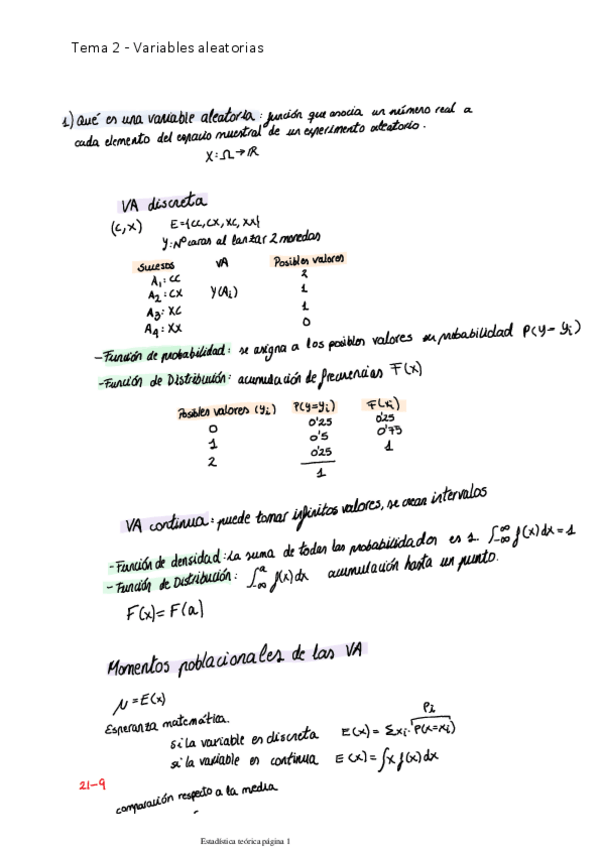 Tema 2 - Variables aleatorias
1) Qué es una variable aleatoria: función que asocia un número real a
cada elemento del espacio muestral de un experimento aleatorio.
X: Ω → ℝ
VA discreta
(C, X) E={CC, CX, XC, XX}
Y: Nº caras al lanzar 2 monedas
Sucesos VA Posibles valores
A₁: CC 2
A₂: CX Y(Aᵢ) 1
A₃: XC 1
A₄: XX 0
-Función de probabilidad: se asigna a los posibles valores su probabilidad P(Y=yᵢ)
-Función de Distribución: acumulación de frecuencias F(x)
Posibles valores (yᵢ) P(y=yᵢ) F(xᵢ)
0 0'25 0'25
1 0'5 0'75
2 0'25 1
1
VA continua: puede tomar infinitos valores, se crean intervalos
- Función de densidad: La suma de todas las probabilidades es 1. ∫_{-∞}^{∞} f(x)dx = 1
- Función de Distribución: ∫_{-∞}^{a} f(x)dx acumulación hasta un punto.
F(x) = F(a)
Momentos poblacionales de las VA
μ = E(x)
Esperanza matemática.
Pᵢ
si la variable es discreta E(x) = Σxᵢ · P(x=xᵢ)
si la variable es continua E(x) = ∫x f(x)dx
21-9
comparación respecto a la media
Estadística teórica página 1